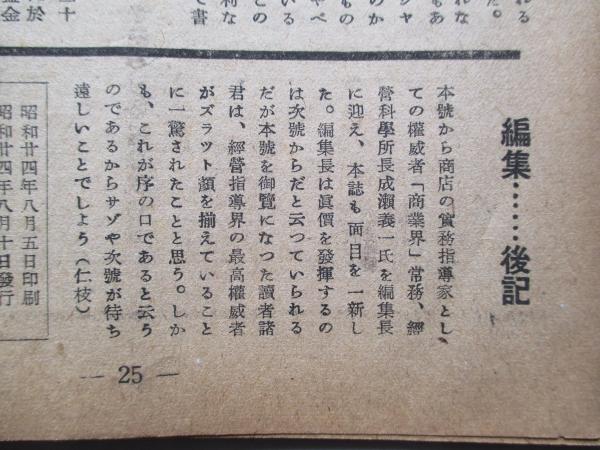 れる
た。
もあ
れな
ジャ
のか
もの
ャペ
いる
この
利な
て書
編集……後記
本號から商店の實務指導家とし、
ての權威者「商業界」常務、經
營科學所長成瀬義一氏を編集長
に迎え、本誌も面目を一新し
た。編集長は眞價を發揮するの
は次號からだと云つていられる
だが本號を御覽になつた讀者諸
君は、經營指導界の最高權威者
がズラツト顔を揃えていること
に一驚されたことと思う。しか
も、これが序の口であると云う
のであるからサゾや次號が待ち
遠しいことでしょう（仁枝）
昭和廿四年八月五日印刷
昭和廿四年八月十日發行
— 25 —